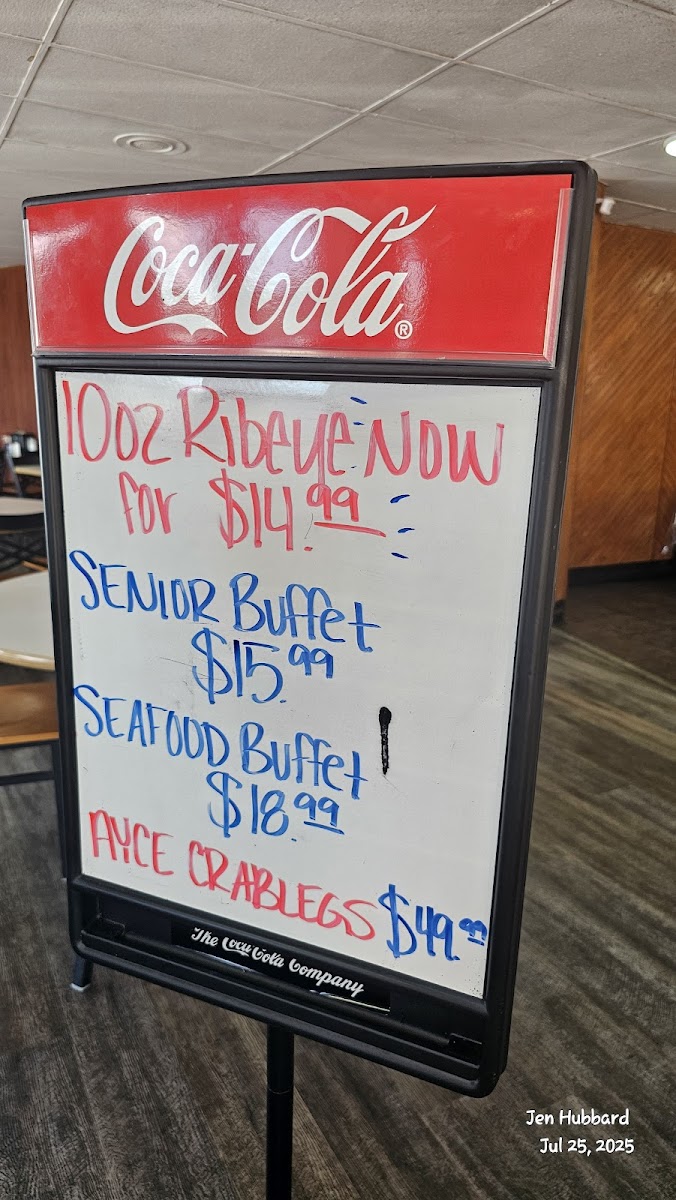 Coca-Cola®
10oz Ribeye NOW
for $14.99
SENIOR Buffet
$15.99
SEAFOOD Buffet
$18.99
AYCE CRABLEGS $49.99
The Coca-Cola Company
Jen Hubbard
Jul 25, 2025